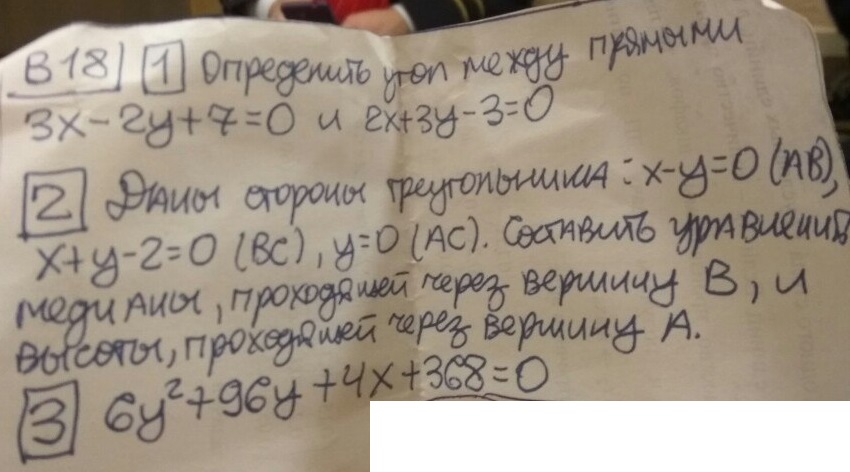 В18 1 Определить угол между прямыми
3x-2y+7=0 и 2x+3y-3=0
2 Даны стороны треугольника: x-y=0 (AB),
x+y-2=0 (BC), y=0 (AC). Составить уравнения
медианы, проходящей через вершину B, и
высоты, проходящей через вершину A.
3 6y²+96y+4x+368=0